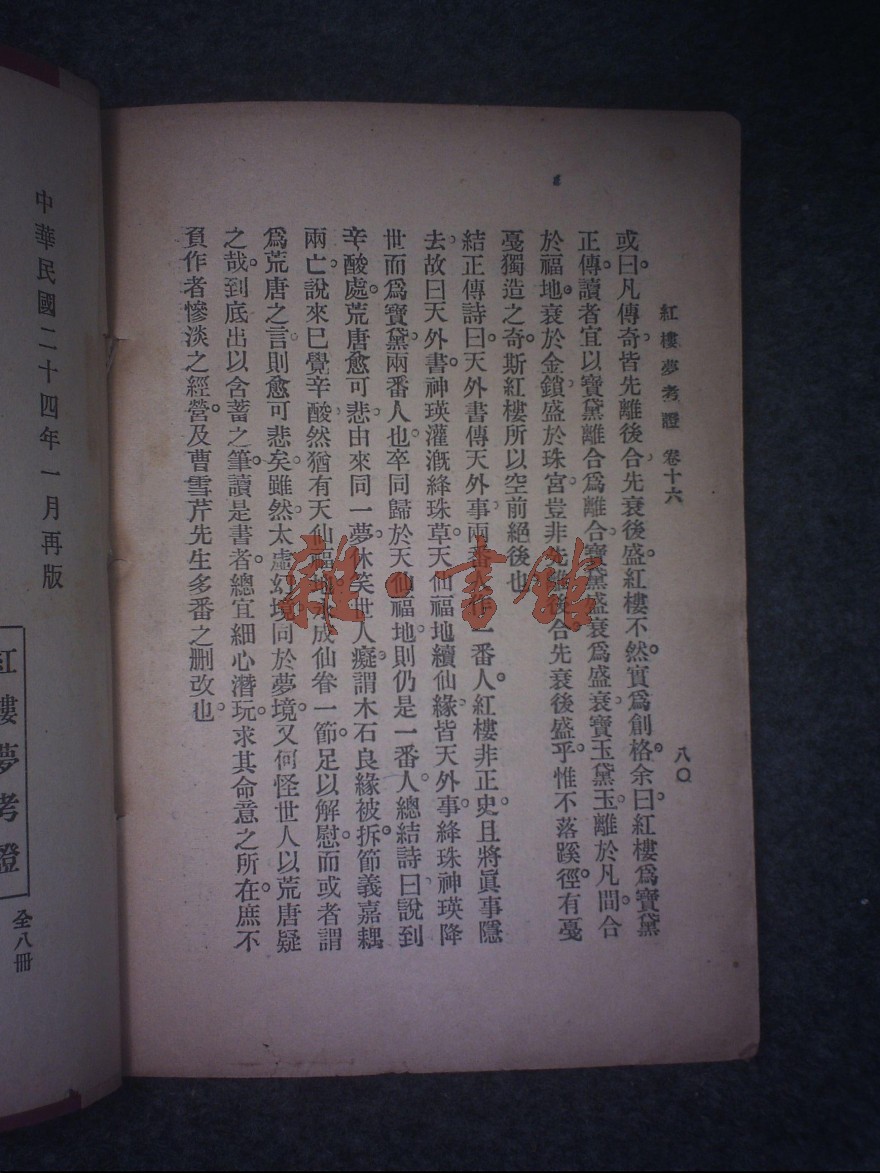 紅樓夢考證 卷十六
八〇
或曰。凡傳奇皆先離後合。先衰後盛。紅樓不然。實爲創格。余曰。紅樓爲寶黛
正傳。讀者宜以寶黛離合爲離合。寶黛盛衰爲盛衰。寶玉黛玉離於凡間。合
於福地。衰於金鎖。盛於珠宮。豈非先離後合。先衰後盛乎。惟不落蹊徑。有戞
戞獨造之奇。斯紅樓所以空前絕後也。
結正傳詩曰。天外書傳天外事。兩番人作一番人。紅樓非正史。且將眞事隱
去。故曰天外書。神瑛灌漑絳珠草。天仙福地續仙緣。皆天外事。絳珠神瑛降
世而爲寶黛。兩番人也。卒同歸於天仙福地。則仍是一番人。總結詩曰。說到
辛酸處。荒唐愈可悲。由來同一夢。休笑世人癡。謂木石良緣被拆。節義嘉耦
兩亡。說來已覺辛酸。然猶有天仙福地。永成仙眷一節。足以解慰。而或者謂
爲荒唐之言。則愈可悲矣。雖然。太虛幻境。同於夢境。又何怪世人以荒唐疑
之哉。到底出以含蓄之筆。讀是書者。總宜細心潛玩。求其命意之所在。庶不
負作者慘淡之經營。及曹雪芹先生多番之刪改也。
中華民國二十四年一月再版
紅樓夢考證
全八冊
雜·書館